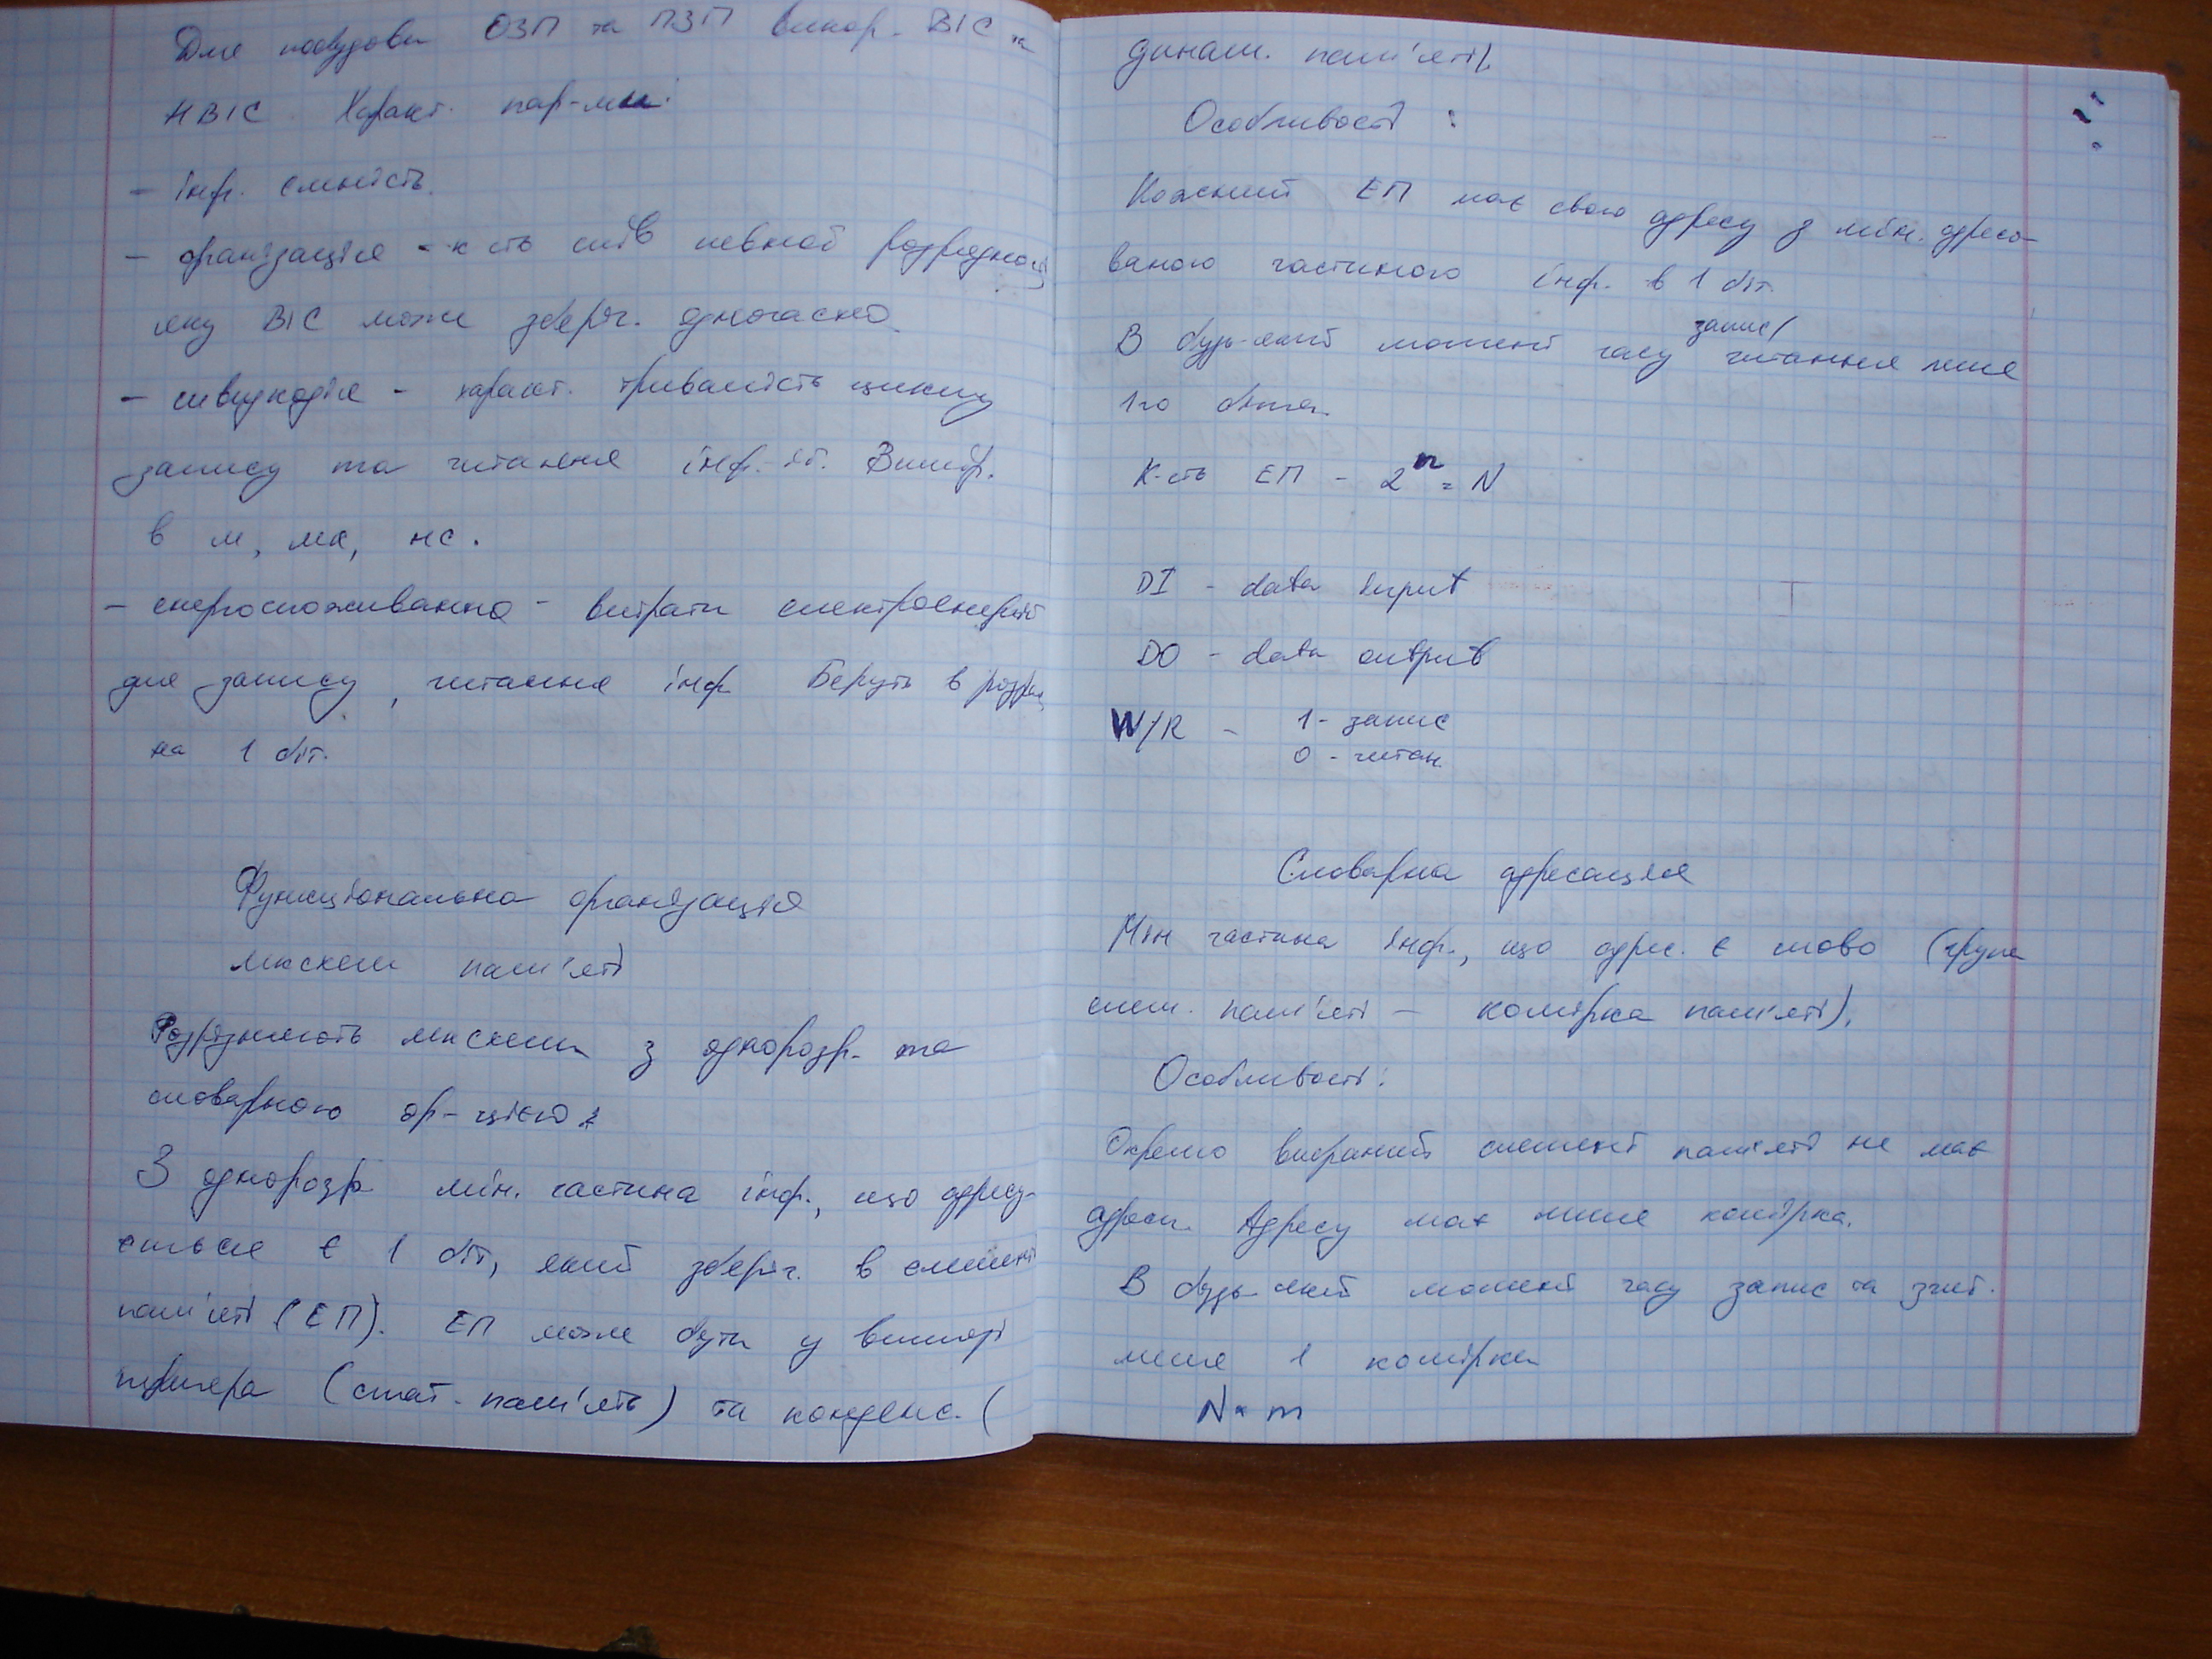 Для побудови ОЗП та ПЗП викор. ВІС та
НВІС. Характ. пар-ми:
- інф. ємність.
- організація - к-сть слів певної розрядності
яку ВІС може зберіг. одночасно.
- швидкодія - характ. тривалість циклу
запису та читання інф.-ії. Вимір.
в м, мк, нс.
- енергоспоживання - витрати електроенергії
для запису, читання інф. Беруть в розрах.
на 1 біт.
Функціональна організація
мксхем пам'яті
Розрізняють мксхеми з однорозр. та
словарною ор-цією:
З однорозр мін. частина інф., що адресу-
ється є 1 біт, який зберіг. в елементі
пам'яті (ЕП). ЕП може бути у вигляді
тригера (стат. пам'ять) та конденс. (
динам. пам'яті).
Особливості :
Кожний ЕП має свою адресу з мін. адресо-
ваною частиною інф. в 1 біт.
В будь-який момент часу запис/ читання лише
1го біта.
К-сть ЕП - 2^n = N
DI - data input
DO - data output
W/R - 1 - запис
0 - читан.
Словарна адресація
Мін частина інф., що адрес. є слово (група
елем. пам'яті - комірка пам'яті).
Особливості:
Окремо вибраний елемент пам'яті не має
адреси. Адресу має лише комірка.
В будь-який момент часу запис та зчит.
лише 1 комірки
N × m